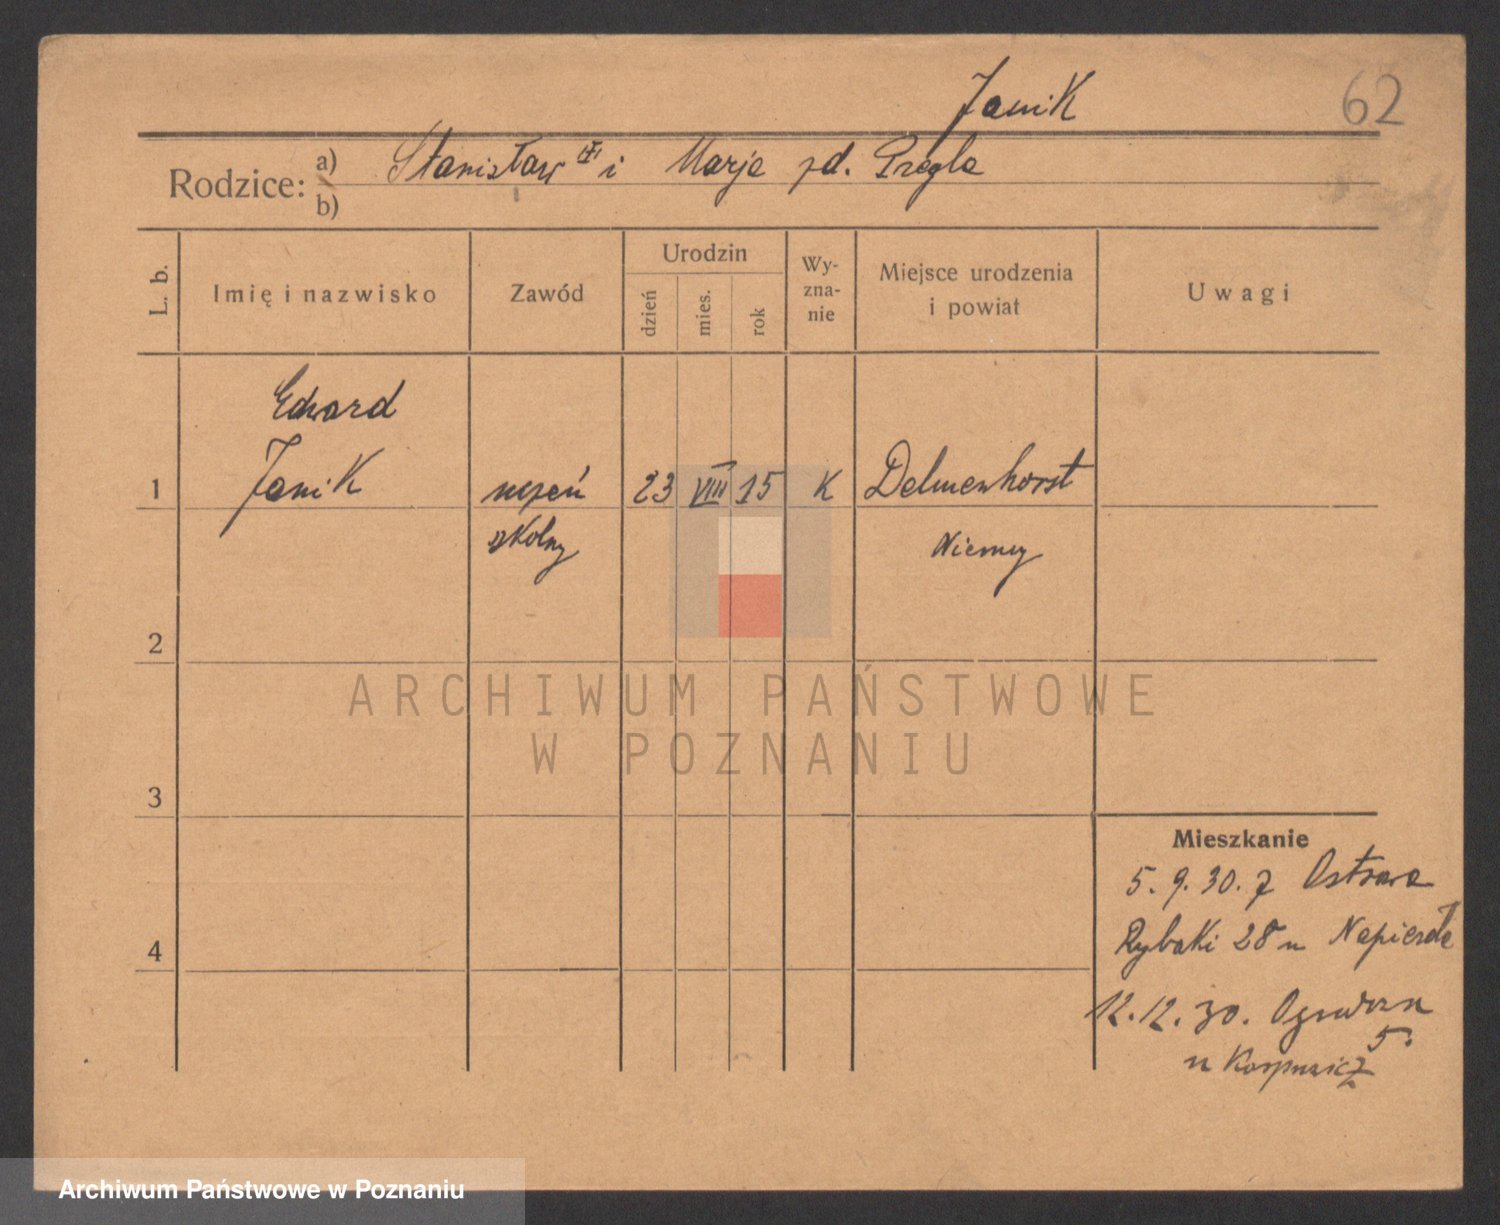 Janik
62
Rodzice: a) Stanisław i Marja zd. Pregla
b)
L. b. Imię i nazwisko Zawód Urodzin dzień mies. rok Wy-zna-nie Miejsce urodzenia i powiat Uwagi
Edward
1 Janik uczeń 23 VIII 15 K Delmenhorst
szkolny Niemcy
2
ARCHIWUM PAŃSTWOWE
W POZNANIU
3
Mieszkanie
5. 9. 30. z Ostrowa
Rybaki 28 u
4
12. 12. 30.
5.
u
Archiwum Państwowe w Poznaniu